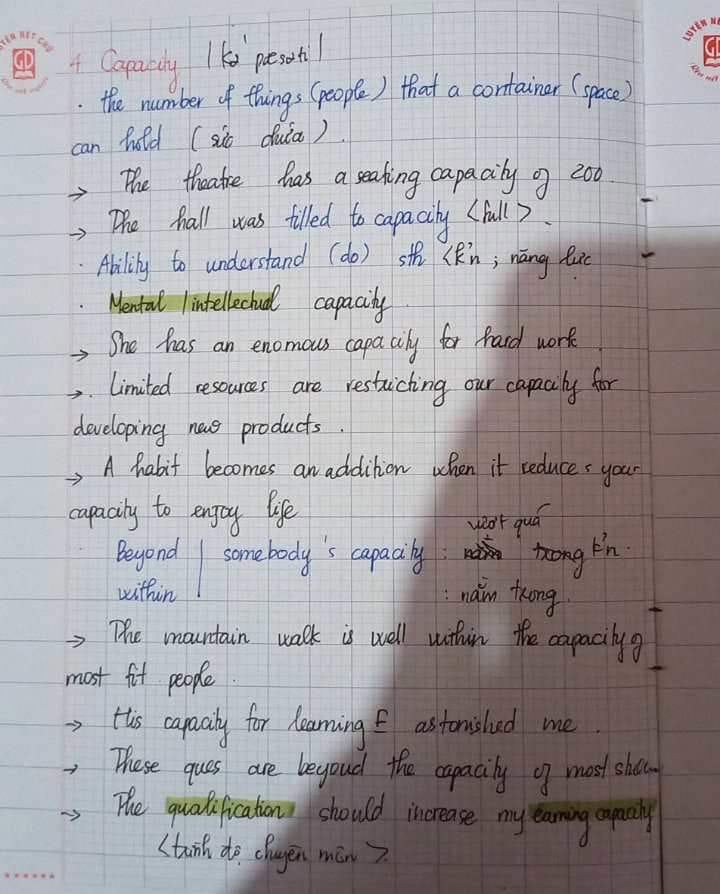 LUYỆN NÉT CHỮ
GD
LUYỆN NÉ
GD
4 Capacity /kə'pæsəti/
. the number of things (people) that a container (space)
can hold (sức chứa).
→ The theatre has a seating capacity of 200
→ The hall was filled to capacity <full>.
. Ability to understand (do) sth <k'n ; năng lực
. Mental / intellectual capacity.
→ She has an enomous capacity for hard work.
→. Limited resources are restricting our capacity for
developing new products.
→ A habit becomes an addition when it reduces your
capacity to enjoy life
vượt quá
Beyond | somebody's capacity : nằm trong k'n.
within | : nằm trong.
→ The mountain walk is well within the capacity of
most fit people.
→ His capacity for learning E astonished me.
→ These ques are beyond the capacity of most
→ The qualification should increase my earning capacity
<trình độ chuyên môn>.